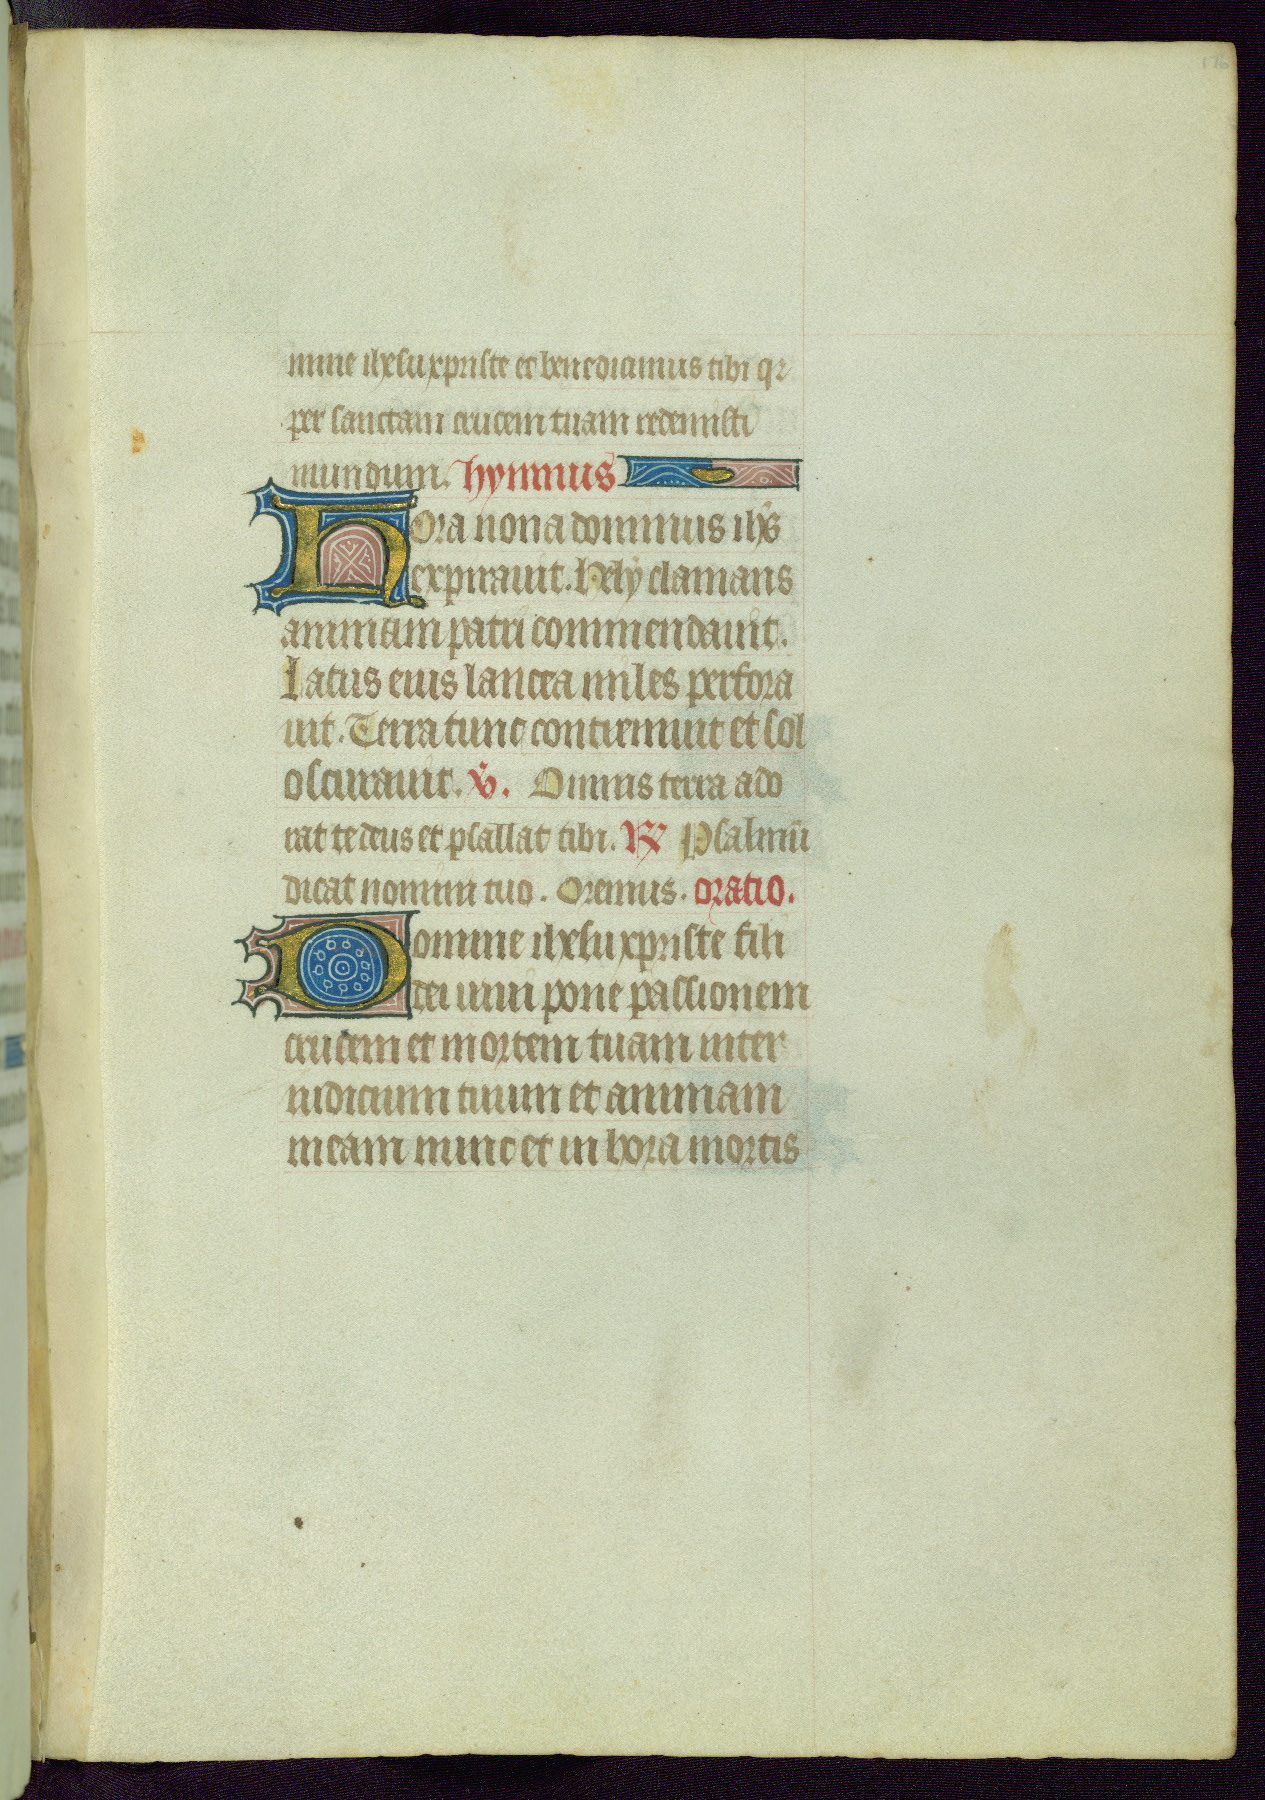 176
mine ihesu xpriste et benedicimus tibi qr
per sanctam crucem tuam redemisti
mundum. hymnus
Hora nona dominus ihs
expirauit. hely clamans
animam patri commendauit.
Latus eius lancea miles perfora
uit. Terra tunc contremuit et sol
oscurauit. v. Omnis terra ado
rat te deus et psallat tibi. R Psalmū
dicat nomini tuo. Oremus. oratio.
Domine ihesu xpriste fili
dei uiui pone passionem
crucem et mortem tuam inter
iudicium tuum et animam
meam nunc et in hora mortis